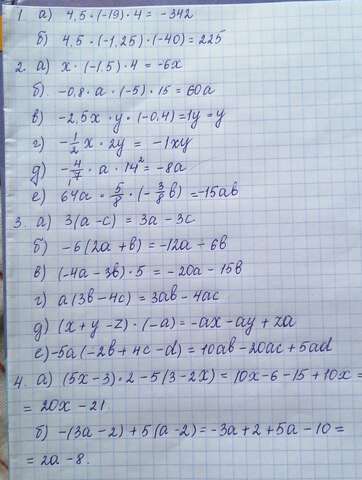 1. а) 4,5 · (-19) · 4 = -342
б) 4,5 · (-1,25) · (-40) = 225
2. а) x · (-1,5) · 4 = -6x
б) -0,8 · a · (-5) · 15 = 60a
в) -2,5x · y · (-0,4) = 1y = y
г) -1/2 x · 2y = -1xy
д) -4/7 · a · 14² = -8a
е) 64a · 5/8 · (-3/8 b) = -15ab
3. а) 3(a - c) = 3a - 3c
б) -6(2a + b) = -12a - 6b
в) (-4a - 3b) · 5 = -20a - 15b
г) a(3b - 4c) = 3ab - 4ac
д) (x + y - z) · (-a) = -ax - ay + za
е) -5a(-2b + 4c - d) = 10ab - 20ac + 5ad
4. а) (5x - 3) · 2 - 5(3 - 2x) = 10x - 6 - 15 + 10x =
= 20x - 21.
б) -(3a - 2) + 5(a - 2) = -3a + 2 + 5a - 10 =
= 2a - 8.